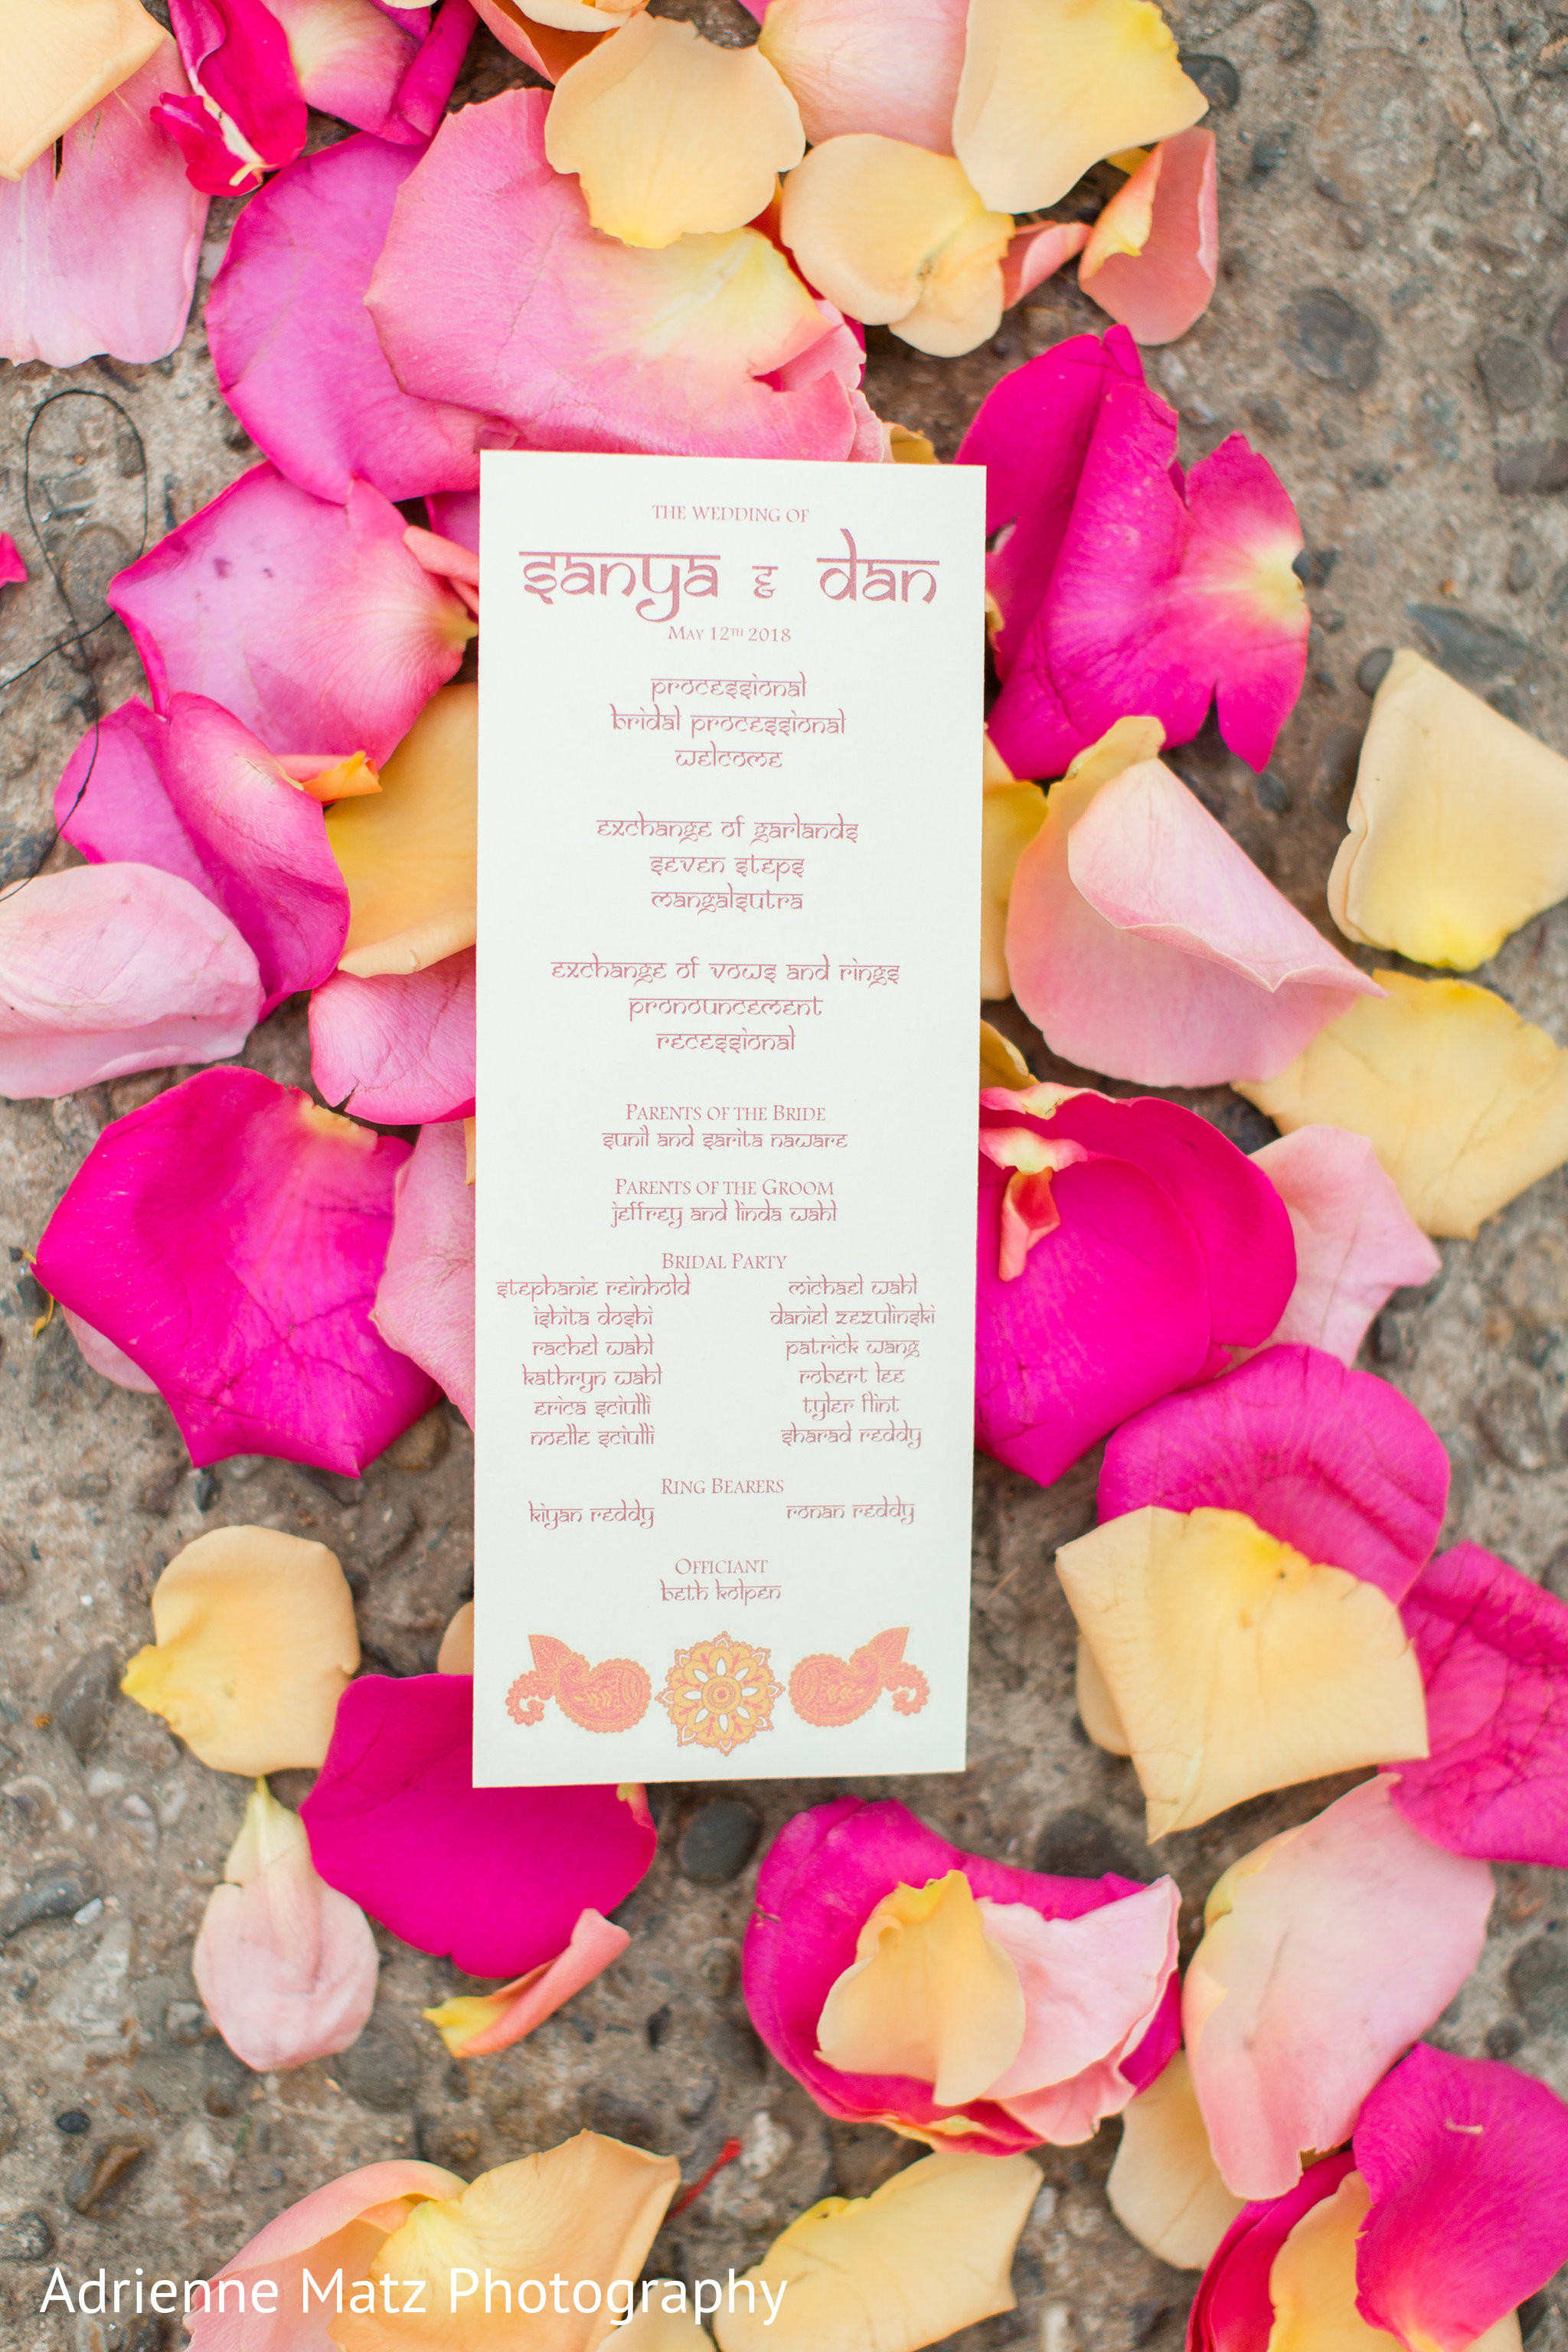 THE WEDDING OF
sanya & dan
MAY 12TH 2018
processional
bridal processional
welcome
exchange of garlands
seven steps
mangalsutra
exchange of vows and rings
pronouncement
recessional
PARENTS OF THE BRIDE
sunil and sarita naware
PARENTS OF THE GROOM
jeffrey and linda wahl
BRIDAL PARTY
stephanie reinhold michael wahl
ishita doshi daniel zezulinski
rachel wahl patrick wang
kathryn wahl robert lee
erica sciulli tyler flint
noelle sciulli sharad reddy
RING BEARERS
kiyan reddy ronan reddy
OFFICIANT
beth kolpen
Adrienne Matz Photography